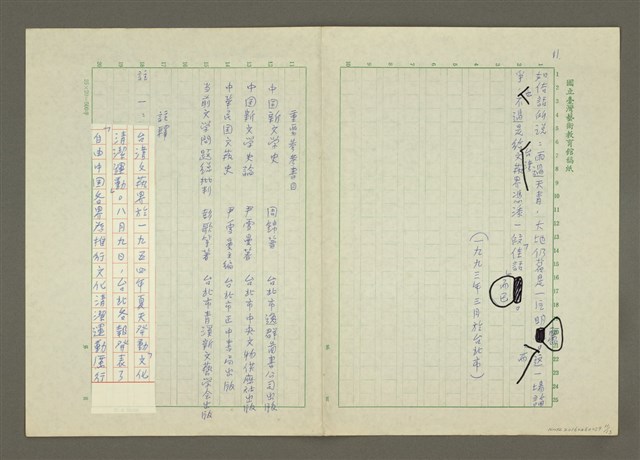 國立臺灣藝術教育館稿紙
11
如俗話所說：雨過天青，大地仍舊是一片明
這一場論
爭不過是給文藝界憑添一段佳話而已。
（一九九三年三月於台北市）
重要參考書目
中國新文學史　周錦著　台北市逸群圖書公司出版
中國新文學史論　尹雪曼著　台北市中央文物供應社出版
中華民國文藝史　尹雪曼主編　台北市正中書局出版
當前文學問題總批判　彭歌等著　台北市青溪新文藝學會出版
註釋
註一、台灣文藝界於一九五四年夏天發動「文化
清潔運動」。八月九日，台北各報發表了
「自由中國各界為推行文化清潔運動厲行